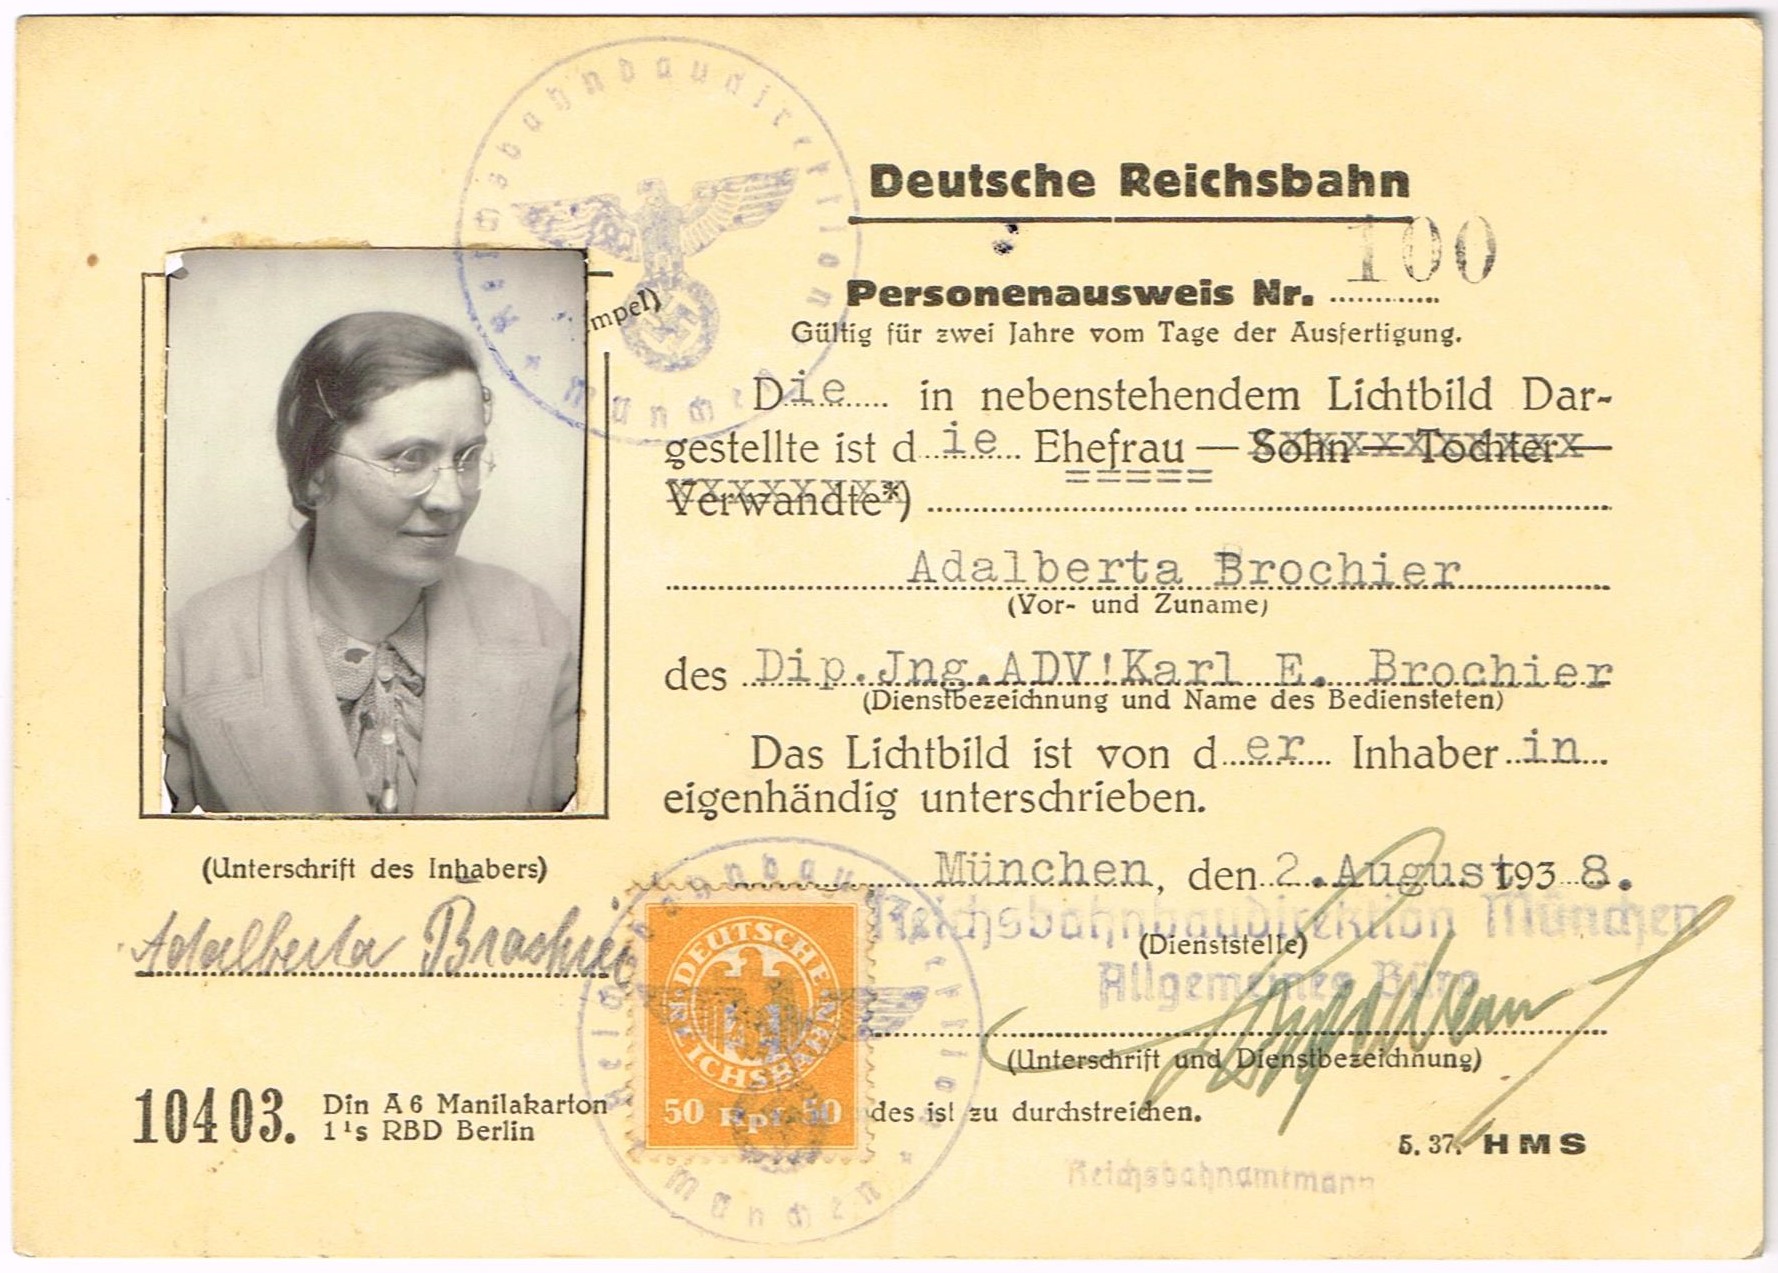 Deutsche Reichsbahn
100
Personenausweis Nr. ............
Gültig für zwei Jahre vom Tage der Ausfertigung.
Die in nebenstehendem Lichtbild Dar-
gestellte ist die Ehefrau — Sohn — Tochter —
Verwandte*)
Adalberta Brochier
(Vor- und Zuname)
des Dip.Jng.ADV!Karl E. Brochier
(Dienstbezeichnung und Name des Bediensteten)
Das Lichtbild ist von der Inhaberin
eigenhändig unterschrieben.
mpel)
Reichsbahnbaudirektion
* München
(Unterschrift des Inhabers)
Adalberta Brochier
München, den 2.August 1938.
Reichsbahnbaudirektion München
(Dienststelle)
Allgemeines Büro
(Unterschrift und Dienstbezeichnung)
DEUTSCHE REICHSBAHN
50 Rpf 50
München *
des ist zu durchstreichen.
10403.
Din A 6 Manilakarton
1's RBD Berlin
5. 37. HMS
Reichsbahnamtmann